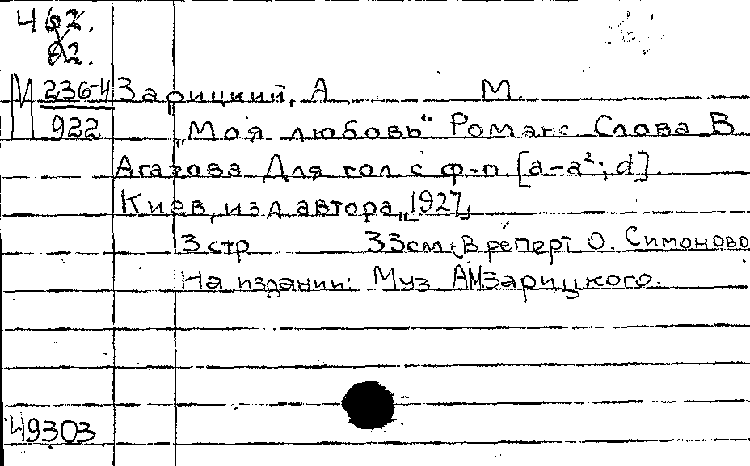 462.
62.
М 236-4 Зарицкий, А М.
922 „Моя любовь" Романс Слова В
Агатова Для гол с ф-п [a-a²; d].
Киев, изд автора, [1927]
3 стр 33см (В реперт О. Симоново
На издании: Муз АМЗарицкого.
49303